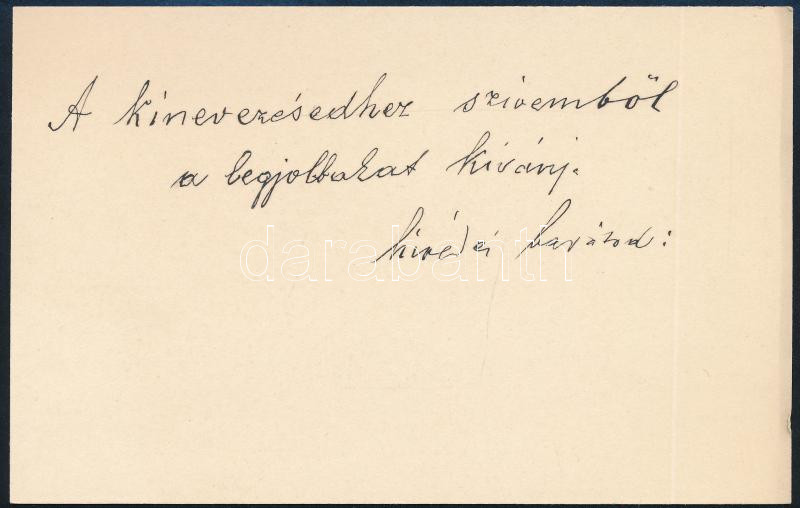 A kinevezésedhez szivemből
a legjobbakat kívánj.
barátod:
darabanth